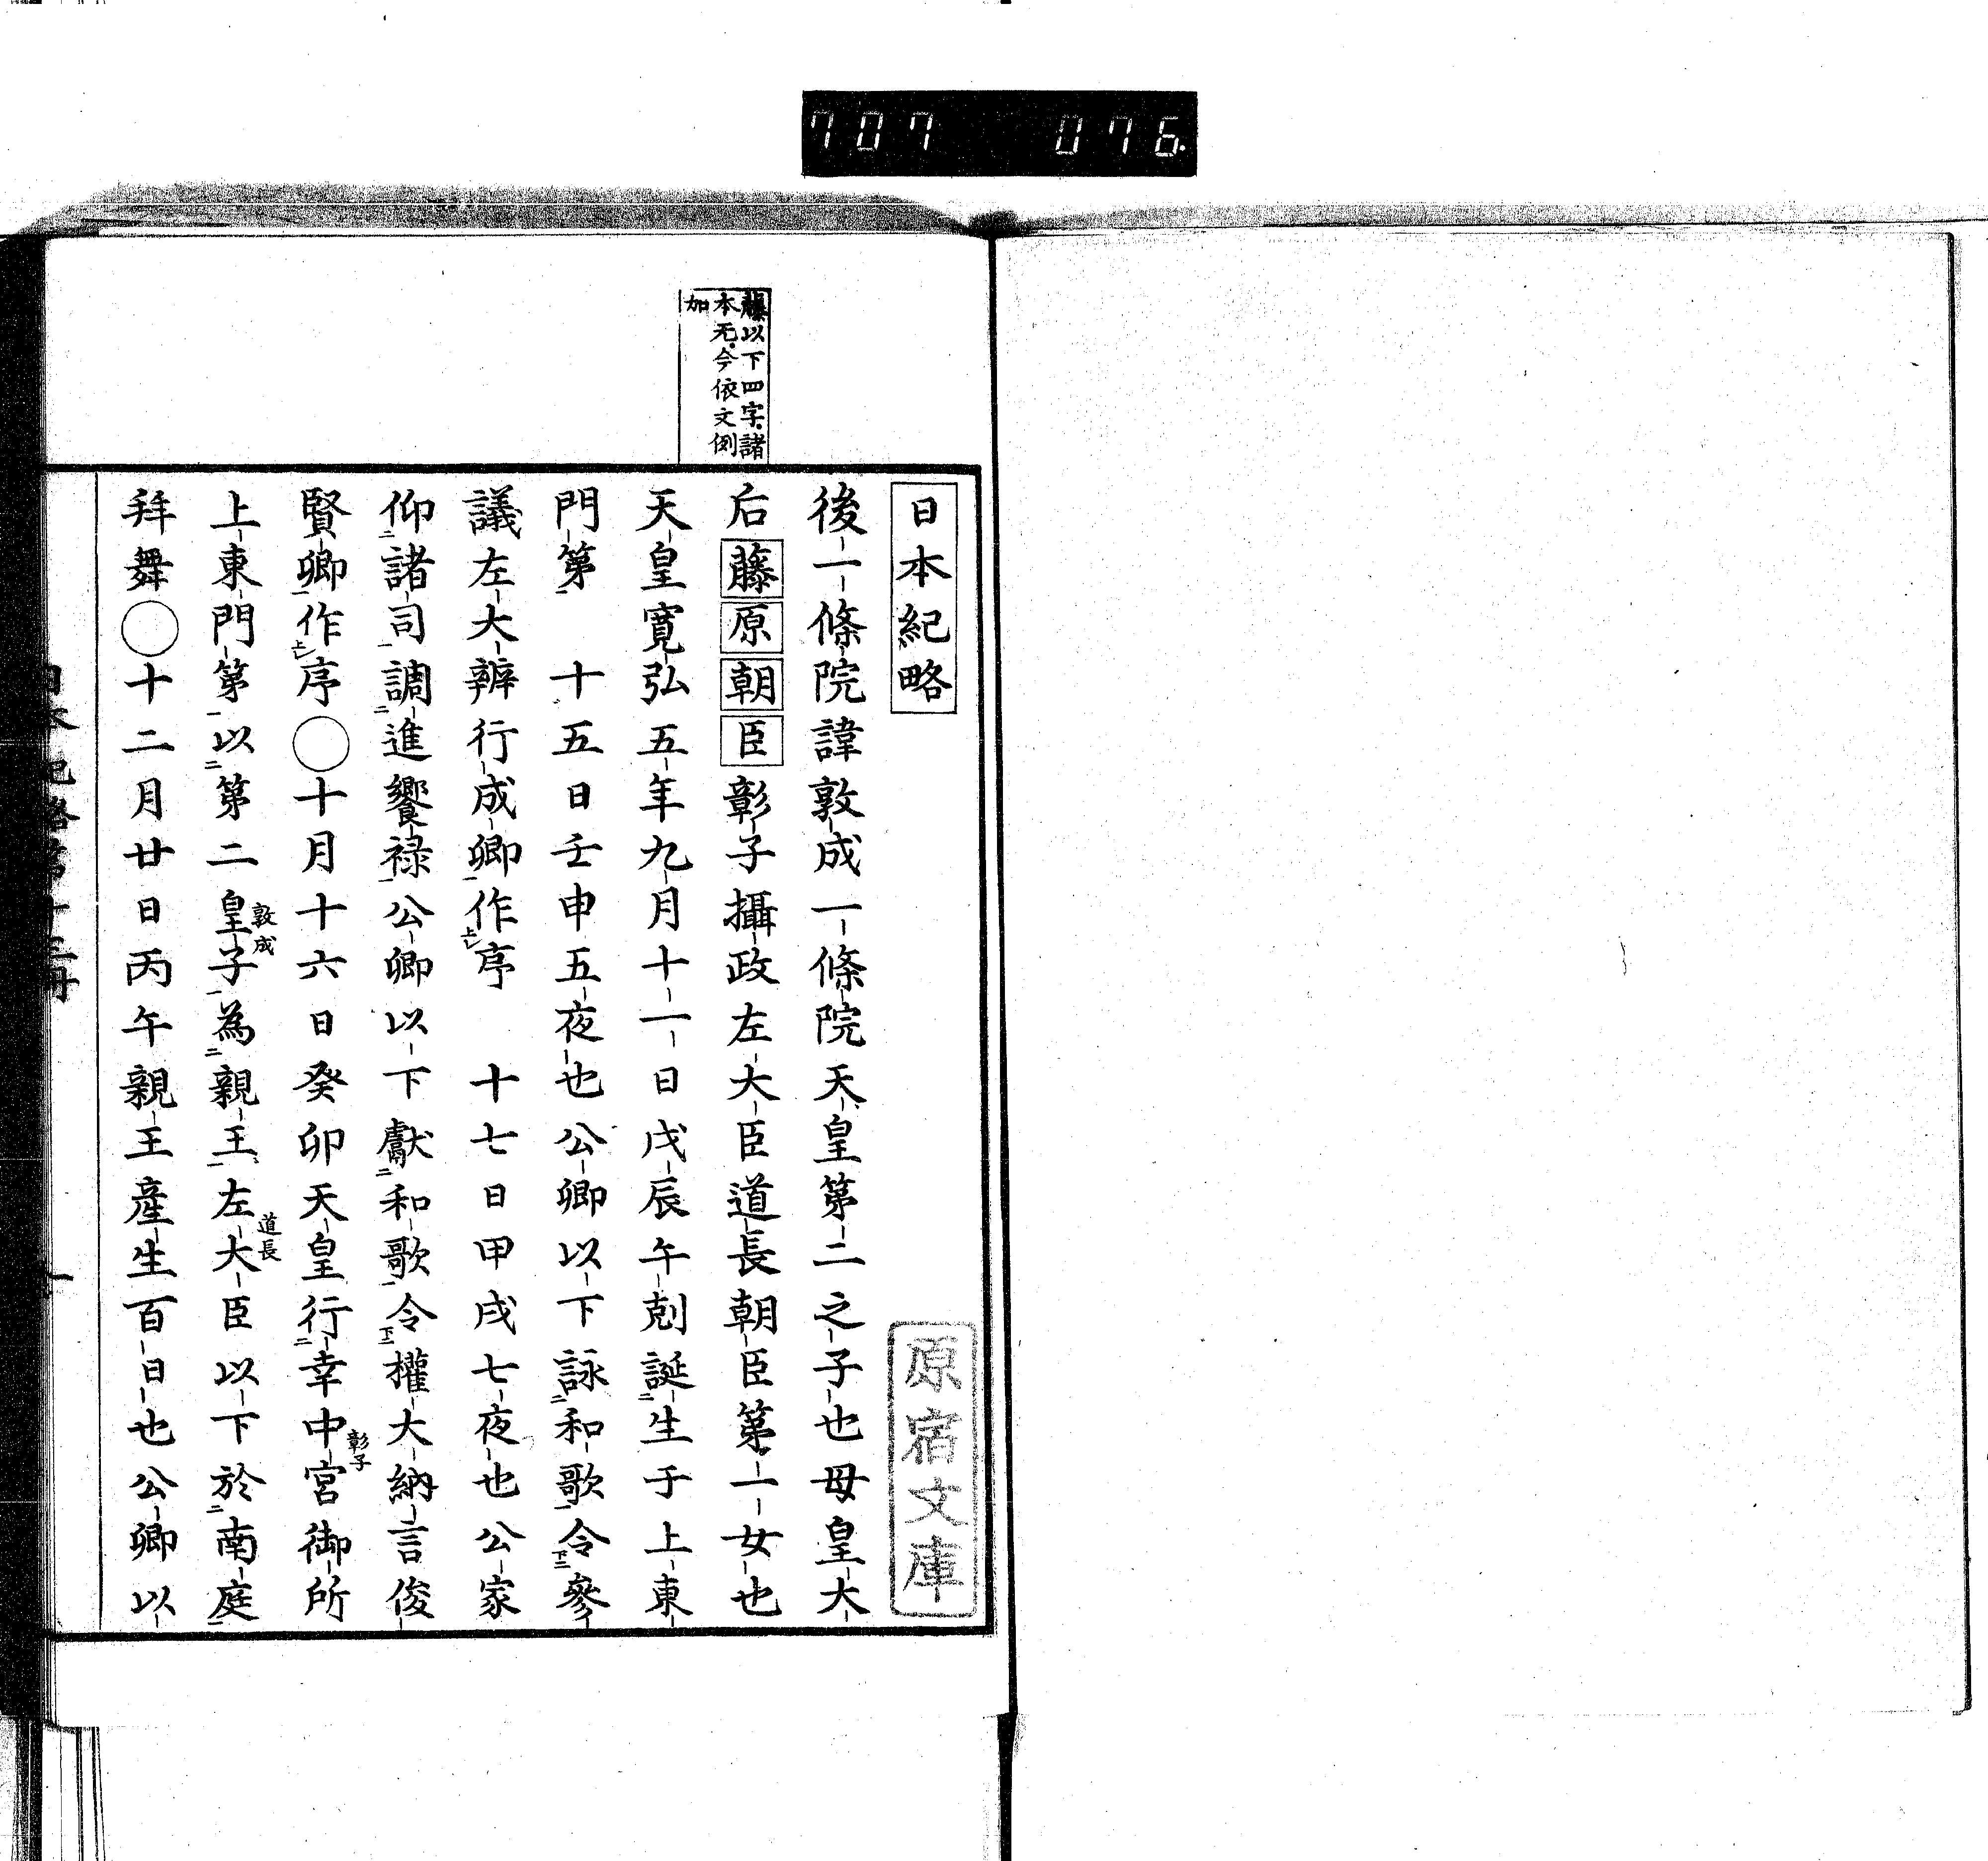 707 076
藤以下四字諸
本无今依文例
加
日本紀略
原宿文庫
後一條院諱敦成一條院天皇第二之子也母皇大
后藤原朝臣彰子攝政左大臣道長朝臣第一女也
天皇寛弘五年九月十一日戊辰午剋誕二生于上東
門第一 十五日壬申五夜也公卿以下詠二和歌一令下二參
議左大辨行成卿一作上レ序 十七日甲戌七夜也公家
仰二諸司一調二進饗祿一公卿以下獻二和歌一令下二權大納言俊
賢卿一作上レ序〇十月十六日癸卯天皇行二幸中宮彰子御所
上東門第一以二第二皇子敦成一為二親王一左大臣道長以下於二南庭一
拜舞〇十二月廿日丙午親王産生百日也公卿以